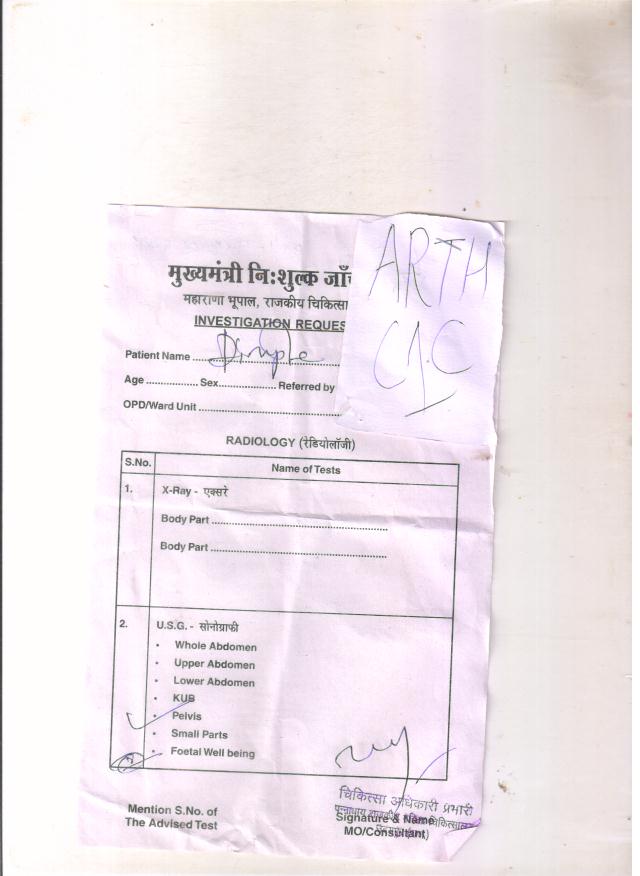 ARTH
C1.C
मुख्यमंत्री नि:शुल्क जाँ
महाराणा भूपाल, राजकीय चिकित्सा
INVESTIGATION REQUES
Patient Name .......... Dimple
Age ............... Sex................ Referred by
OPD/Ward Unit ..........................................
RADIOLOGY (रेडियोलॉजी)
S.No. Name of Tests
1. X-Ray - एक्सरे
Body Part ......................................................
Body Part ......................................................
2. U.S.G. - सोनोग्राफी
• Whole Abdomen
• Upper Abdomen
• Lower Abdomen
• KUB
• Pelvis
• Small Parts
• Foetal Well being
चिकित्सा अधिकारी प्रभारी
Mention S.No. of
The Advised Test
Signature & Name
MO/Consultant